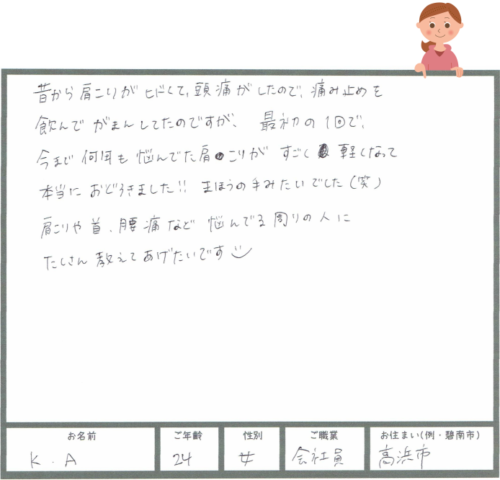 昔から肩こりがヒドくて、頭痛がしたので、痛み止めを
飲んでがまんしてたのですが、最初の1回で、
今まで何年も悩んでた肩こりがすごく軽くなって
本当におどろきました!! まほうの手みたいでした(笑)
肩こりや首、腰痛など悩んでる周りの人に
たくさん教えてあげたいです
お名前 ご年齢 性別 ご職業 お住まい(例・碧南市)
K.A 24 女 会社員 高浜市